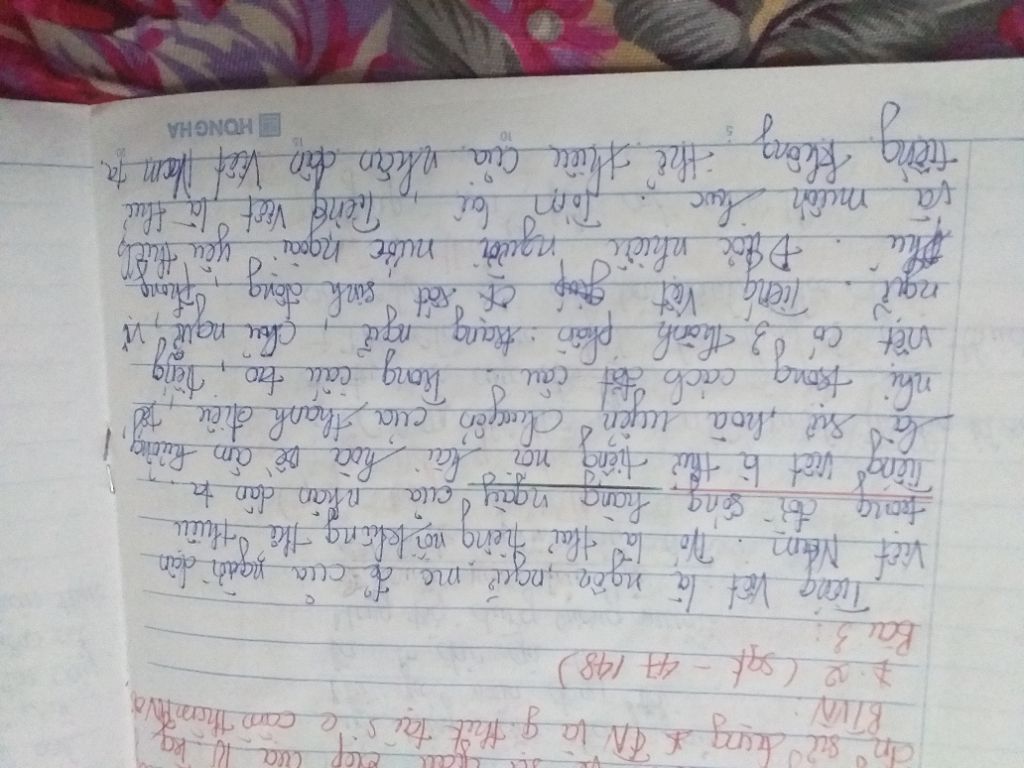 sử quan đẹp của
sử dụng TN là g. thik tại s e cảm thấm
BTVN
2 (sgk - 47 148)
Bài 3:
Tiếng Việt là ngôn ngữ mẹ đẻ của người dân
Việt Nam. Nó là thứ tiếng nói không thể thiếu
trong đời sống hằng ngày của nhân dân ta.
Tiếng Việt là thứ tiếng nói hài hoà về âm hưởng,
là sự hoà uyển chuyển của thanh điệu, tế
nhị trong cách đặt câu. Trong cấu trò, tiếng
việt có 3 thành phần: trạng ngữ, chủ ngữ, vị
ngữ. Tiếng Việt rất sinh động, phong
phú. Được nhiều người nước ngoài yêu thích
và muốn học. Tóm lại, Tiếng Việt là thứ
tiếng không thể thiếu của nhân dân Việt Nam ta.
HONG HA